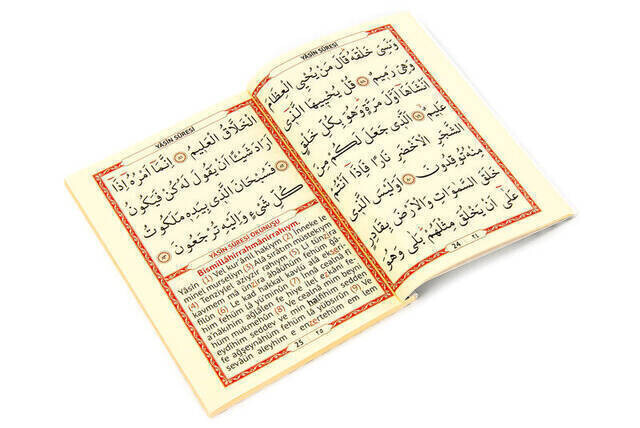 YÂSÎN SÛRESİ
وَنَسِىَ خَلْقَهُ قَالَ مَنْ يُحْيِى الْعِظَامَ
وَهِىَ رَمِيمٌ ﴿٧٨﴾ قُلْ يُحْيِيهَا الَّذِى
اَنْشَاَهَا اَوَّلَ مَرَّةٍ وَهُوَ بِكُلِّ خَلْقٍ
عَلِيمٌ ﴿٧٩﴾ اَلَّذِى جَعَلَ لَكُمْ مِنَ
الشَّجَرِ الْاَخْضَرِ نَارًا فَاِذَا اَنْتُمْ
مِنْهُ تُوقِدُونَ ﴿٨٠﴾ اَوَلَيْسَ الَّذِى
خَلَقَ السَّمٰوَاتِ وَالْاَرْضَ بِقَادِرٍ
عَلٰى اَنْ يَخْلُقَ مِثْلَهُمْ بَلٰى وَهُوَ
24
YÂSÎN SÛRESİ
الْخَلَّاقُ الْعَلِيمُ ﴿٨١﴾ اِنَّمَا اَمْرُهُ اِذَا
اَرَادَ شَيْئًا اَنْ يَقُولَ لَهُ كُنْ فَيَكُونُ ﴿٨٢﴾
فَسُبْحَانَ الَّذِى بِيَدِهِ مَلَكُوتُ
كُلِّ شَىْءٍ وَاِلَيْهِ تُرْجَعُونَ ﴿٨٣﴾
YÂSÎN SÛRESİ OKUNUŞU
Bismillâhirrahmânirrahıym.
Yâsîn (1) Vel kur'ânil hakiym (2) İnneke le
minel murseliyn (3) Alâ sırâtım müstekıym
(4) Tenziylel aziyzir rahıym (5) Li tünzira
kavmem mâ ünzira âbâühüm fehüm ğâ-
filûn (6) Le kad hakkal kavlü alâ ekseri-
him fehüm lâ yü'minûn (7) İnnâ cealnâ fî
a'nâkıhim ağlâlen fe hiye ilel ezkâni fe-
hüm mukmehûn (8) Ve cealnâ mim beyni
eydîhim seddev ve min halfihim sedden
fe ağşeynâhüm fehüm lâ yübsırûn (9) Ve
sevâün aleyhim e enzertehüm em lem
25